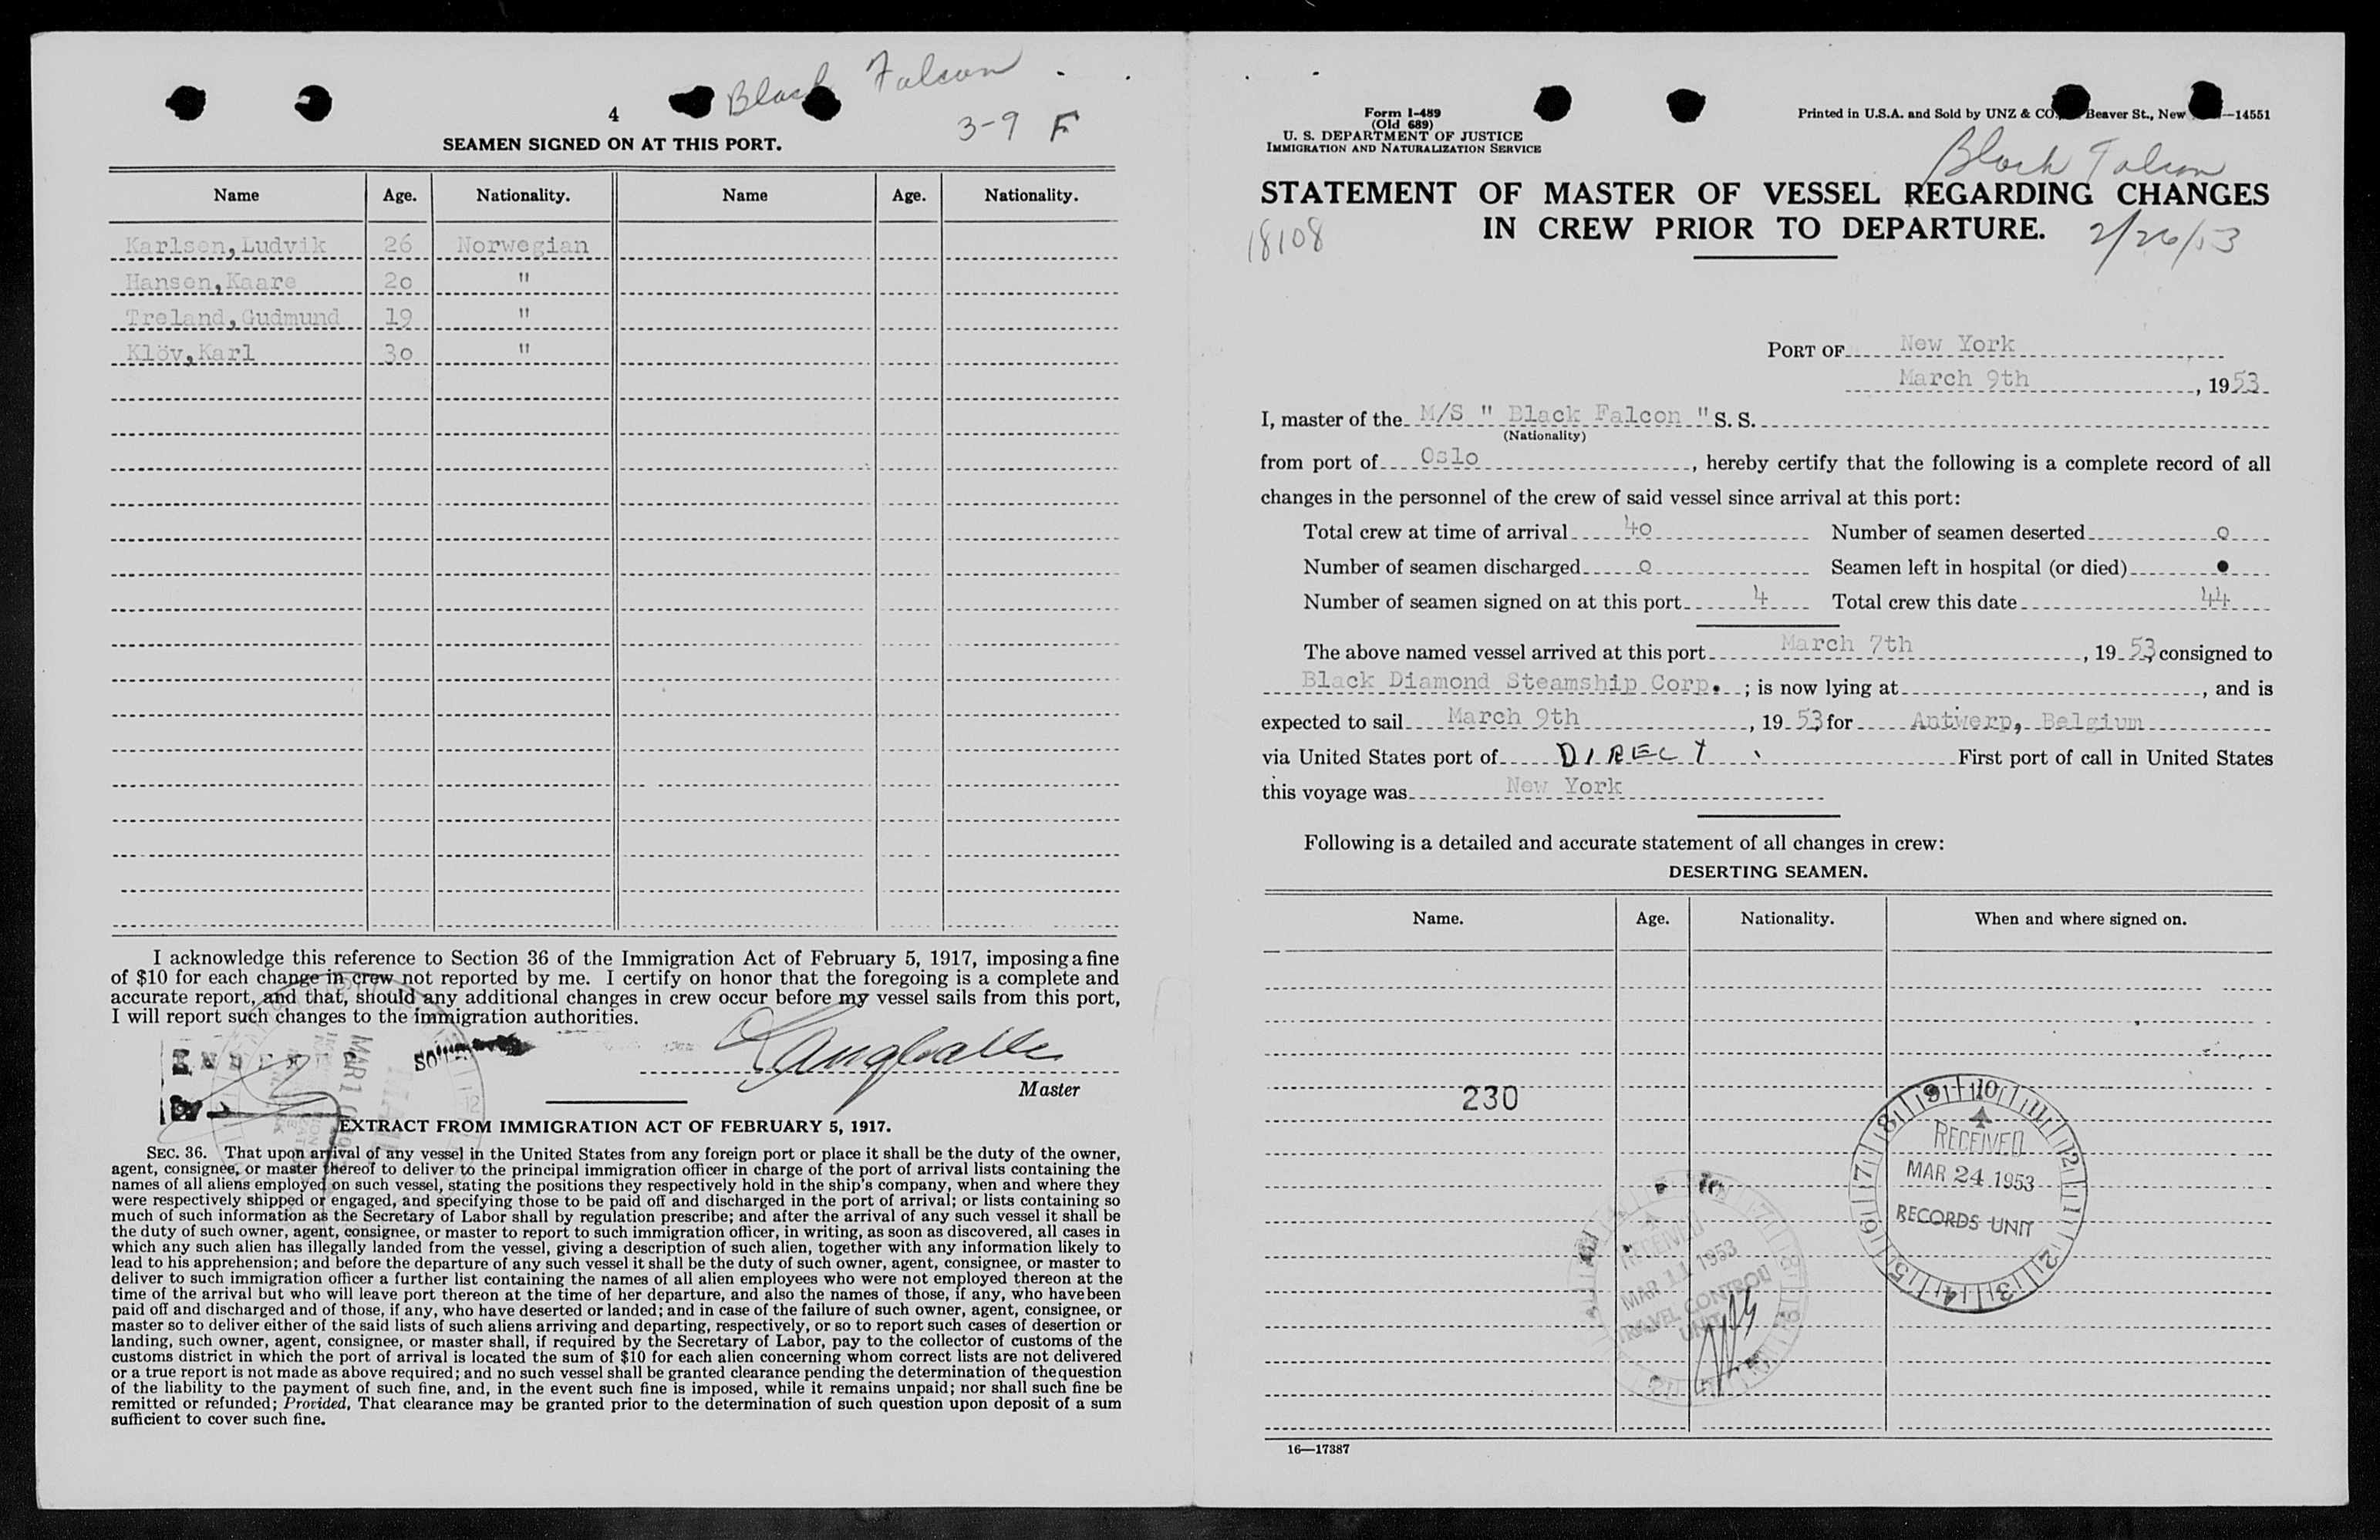 Black Falcon
3-9 F
4
SEAMEN SIGNED ON AT THIS PORT.
Name Age. Nationality. Name Age. Nationality.
Karlsen, Ludvik 26 Norwegian
Hansen, Kaare 20 "
Treland, Gudmund 19 "
Klöv, Karl 30 "
I acknowledge this reference to Section 36 of the Immigration Act of February 5, 1917, imposing a fine
of $10 for each change in crew not reported by me. I certify on honor that the foregoing is a complete and
accurate report, and that, should any additional changes in crew occur before my vessel sails from this port,
I will report such changes to the immigration authorities.
Master
EXTRACT FROM IMMIGRATION ACT OF FEBRUARY 5, 1917.
SEC. 36. That upon arrival of any vessel in the United States from any foreign port or place it shall be the duty of the owner,
agent, consignee, or master thereof to deliver to the principal immigration officer in charge of the port of arrival lists containing the
names of all aliens employed on such vessel, stating the positions they respectively hold in the ship's company, when and where they
were respectively shipped or engaged, and specifying those to be paid off and discharged in the port of arrival; or lists containing so
much of such information as the Secretary of Labor shall by regulation prescribe; and after the arrival of any such vessel it shall be
the duty of such owner, agent, consignee, or master to report to such immigration officer, in writing, as soon as discovered, all cases in
which any such alien has illegally landed from the vessel, giving a description of such alien, together with any information likely to
lead to his apprehension; and before the departure of any such vessel it shall be the duty of such owner, agent, consignee, or master to
deliver to such immigration officer a further list containing the names of all alien employees who were not employed thereon at the
time of the arrival but who will leave port thereon at the time of her departure, and also the names of those, if any, who have been
paid off and discharged and of those, if any, who have deserted or landed; and in case of the failure of such owner, agent, consignee, or
master so to deliver either of the said lists of such aliens arriving and departing, respectively, or so to report such cases of desertion or
landing, such owner, agent, consignee, or master shall, if required by the Secretary of Labor, pay to the collector of customs of the
customs district in which the port of arrival is located the sum of $10 for each alien concerning whom correct lists are not delivered
or a true report is not made as above required; and no such vessel shall be granted clearance pending the determination of the question
of the liability to the payment of such fine, and, in the event such fine is imposed, while it remains unpaid; nor shall such fine be
remitted or refunded; Provided, That clearance may be granted prior to the determination of such question upon deposit of a sum
sufficient to cover such fine.
Form I-489
(Old 689)
U. S. DEPARTMENT OF JUSTICE
IMMIGRATION AND NATURALIZATION SERVICE
Printed in U.S.A. and Sold by UNZ & CO. Beaver St., New —14551
Black Falcon
STATEMENT OF MASTER OF VESSEL REGARDING CHANGES
IN CREW PRIOR TO DEPARTURE.
18108
2/26/53
PORT OF New York
March 9th, 1953
I, master of the M/S " Black Falcon " S. S.
(Nationality)
from port of Oslo, hereby certify that the following is a complete record of all
changes in the personnel of the crew of said vessel since arrival at this port:
Total crew at time of arrival 40 Number of seamen deserted 0
Number of seamen discharged 0 Seamen left in hospital (or died)
Number of seamen signed on at this port 4 Total crew this date 44
The above named vessel arrived at this port March 7th, 1953, consigned to
Black Diamond Steamship Corp. ; is now lying at , and is
expected to sail March 9th, 1953, for Antwerp, Belgium
via United States port of DIRECT First port of call in United States
this voyage was New York
Following is a detailed and accurate statement of all changes in crew:
DESERTING SEAMEN.
Name. Age. Nationality. When and where signed on.
230
9 10 11 12 1 2 3 4 5 6 7 8
RECEIVED
MAR 24 1953
RECORDS UNIT
RECEIVED
MAR 11 1953
TRAVEL CONTROL
UNIT
16—17387